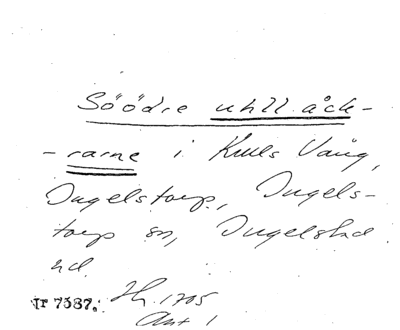 Söödre uhll åck-
- rarne i Kulls Vång,
Ingelstorp, Ingels-
torp sn, Ingelstad
hd.
Ir 7387. Jh 1705
Akt 1